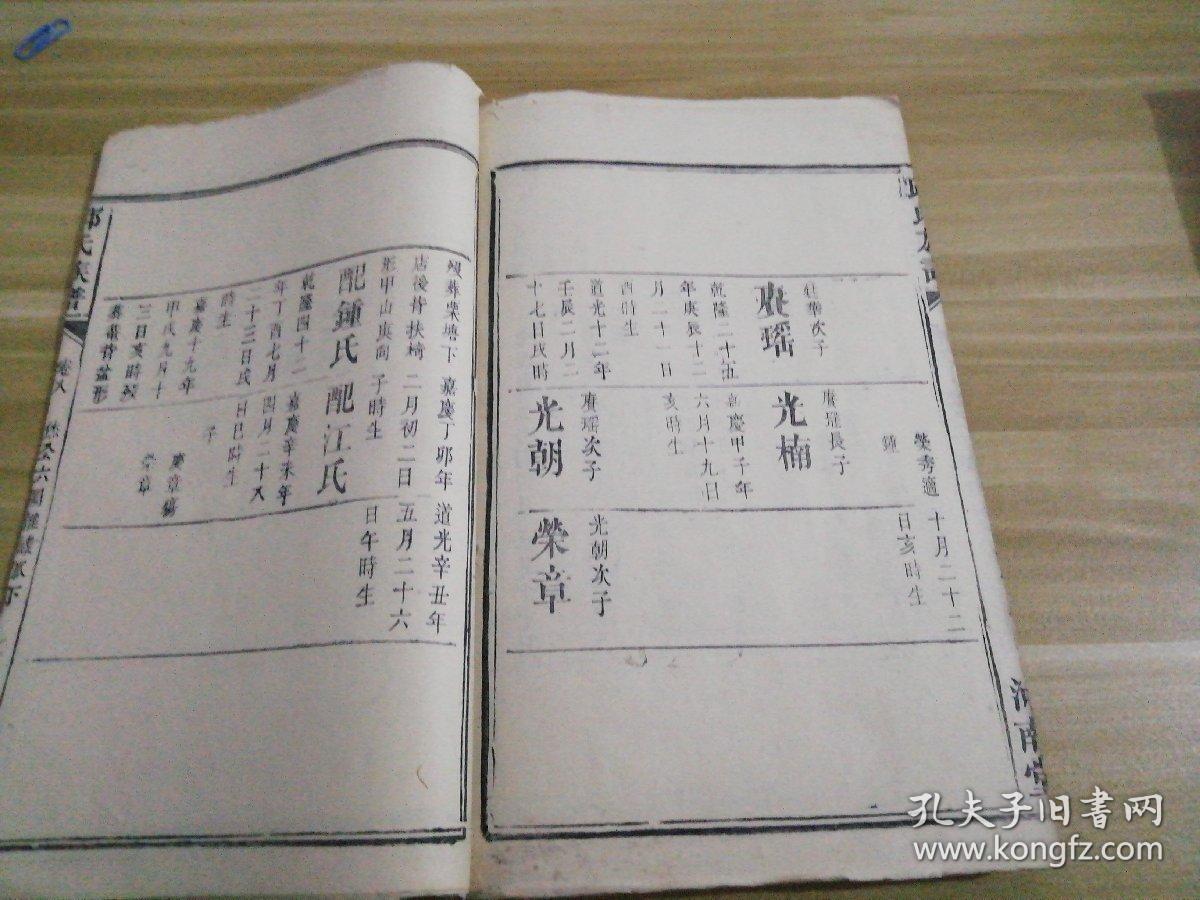 榮秀適
十月二十二
日亥時生
壯華次子
賡瑶
乾隆二十五
年庚辰十二
月二十一日
酉時生
道光十二年
壬辰二月二
十七日戌時
長子
光楠
慶甲子年
六月十九日
亥時生
賡瑶次子
光朝
光朝次子
榮章
河南堂
殁葬柴塘下
店後背扶椅
形甲山庚向
配鍾氏
乾隆四十二
年丁酉七月
二十三日戌
時生
嘉慶十九年
甲戌九月十
三日亥時殁
背盆形
嘉慶丁卯年
二月初二日
子時生
配江氏
嘉慶辛未年
四月二十八
日巳時生
子
榮章
道光辛丑年
五月二十六
日午時生
氏族譜
卷八
下
孔夫子旧书网
www.kongfz.com